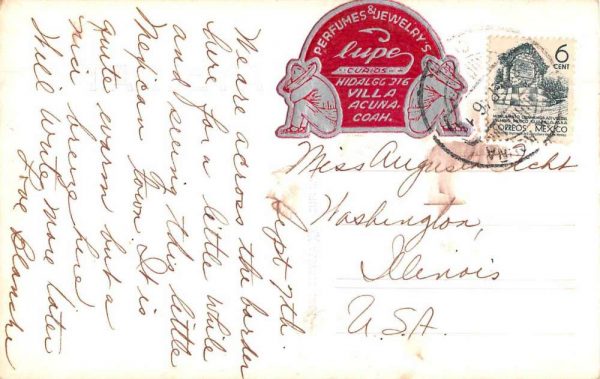 Sept 7th
We are across the border
here for a little while
and seeing this little
Mexican town. It is
quite warm but a
nice breeze here
Will write more later
Love Blanche
PERFUMES & JEWELRY'S
Lupe
CURIOS
HIDALGO 316
VILLA
ACUNA,
COAH.
6
CENT
CORREOS MEXICO
Miss Augusta
Washington,
Illinois
U.S.A.